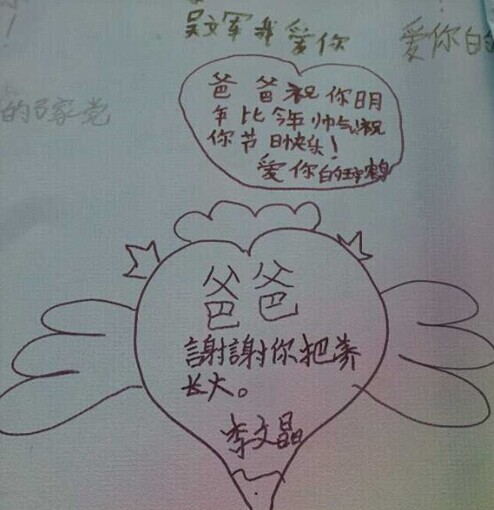 吴文军我爱你
爱你的
爸爸祝你明
年比今年帅气祝
你节日快乐！
爱你的
爸爸
謝謝你把养
长大。
李文晶